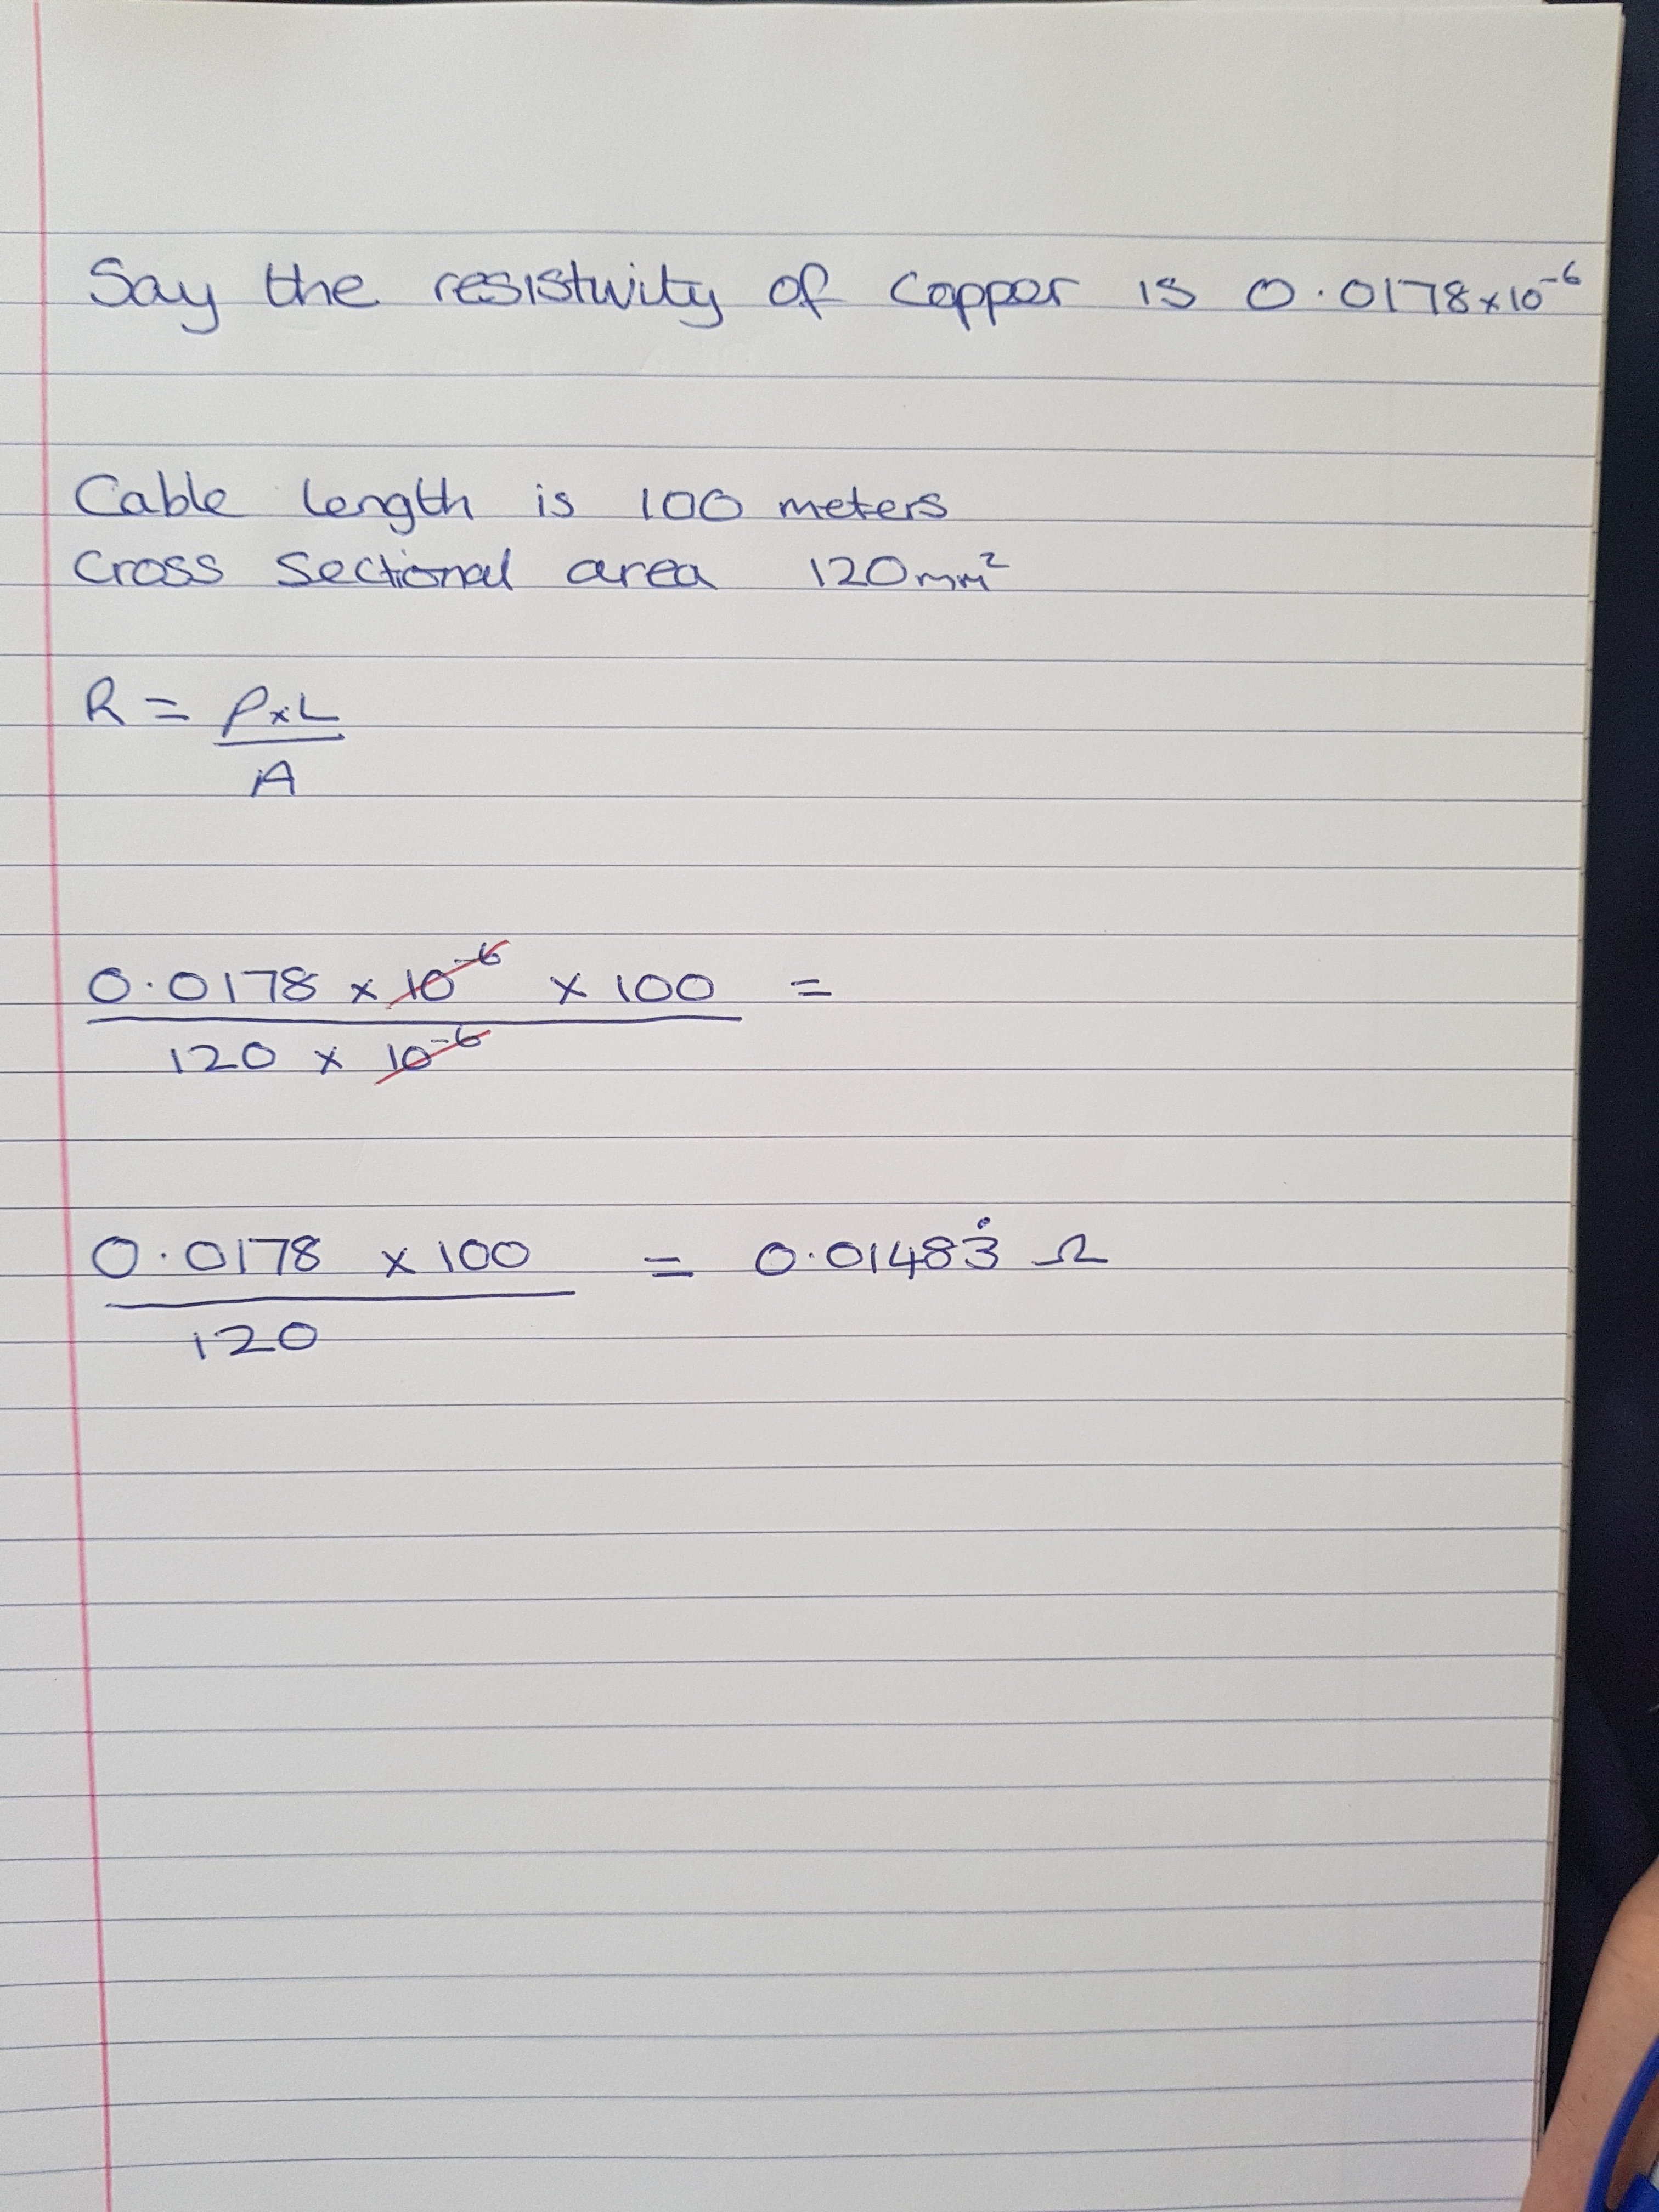 Say the resistivity of Copper is 0.0178×10⁻⁶
Cable length is 100 meters
Cross Sectional area 120mm²
R = ρ×L
A
0.0178 × 10⁻⁶ × 100 =
120 × 10⁻⁶
0.0178 × 100 = 0.01483̇ Ω
120